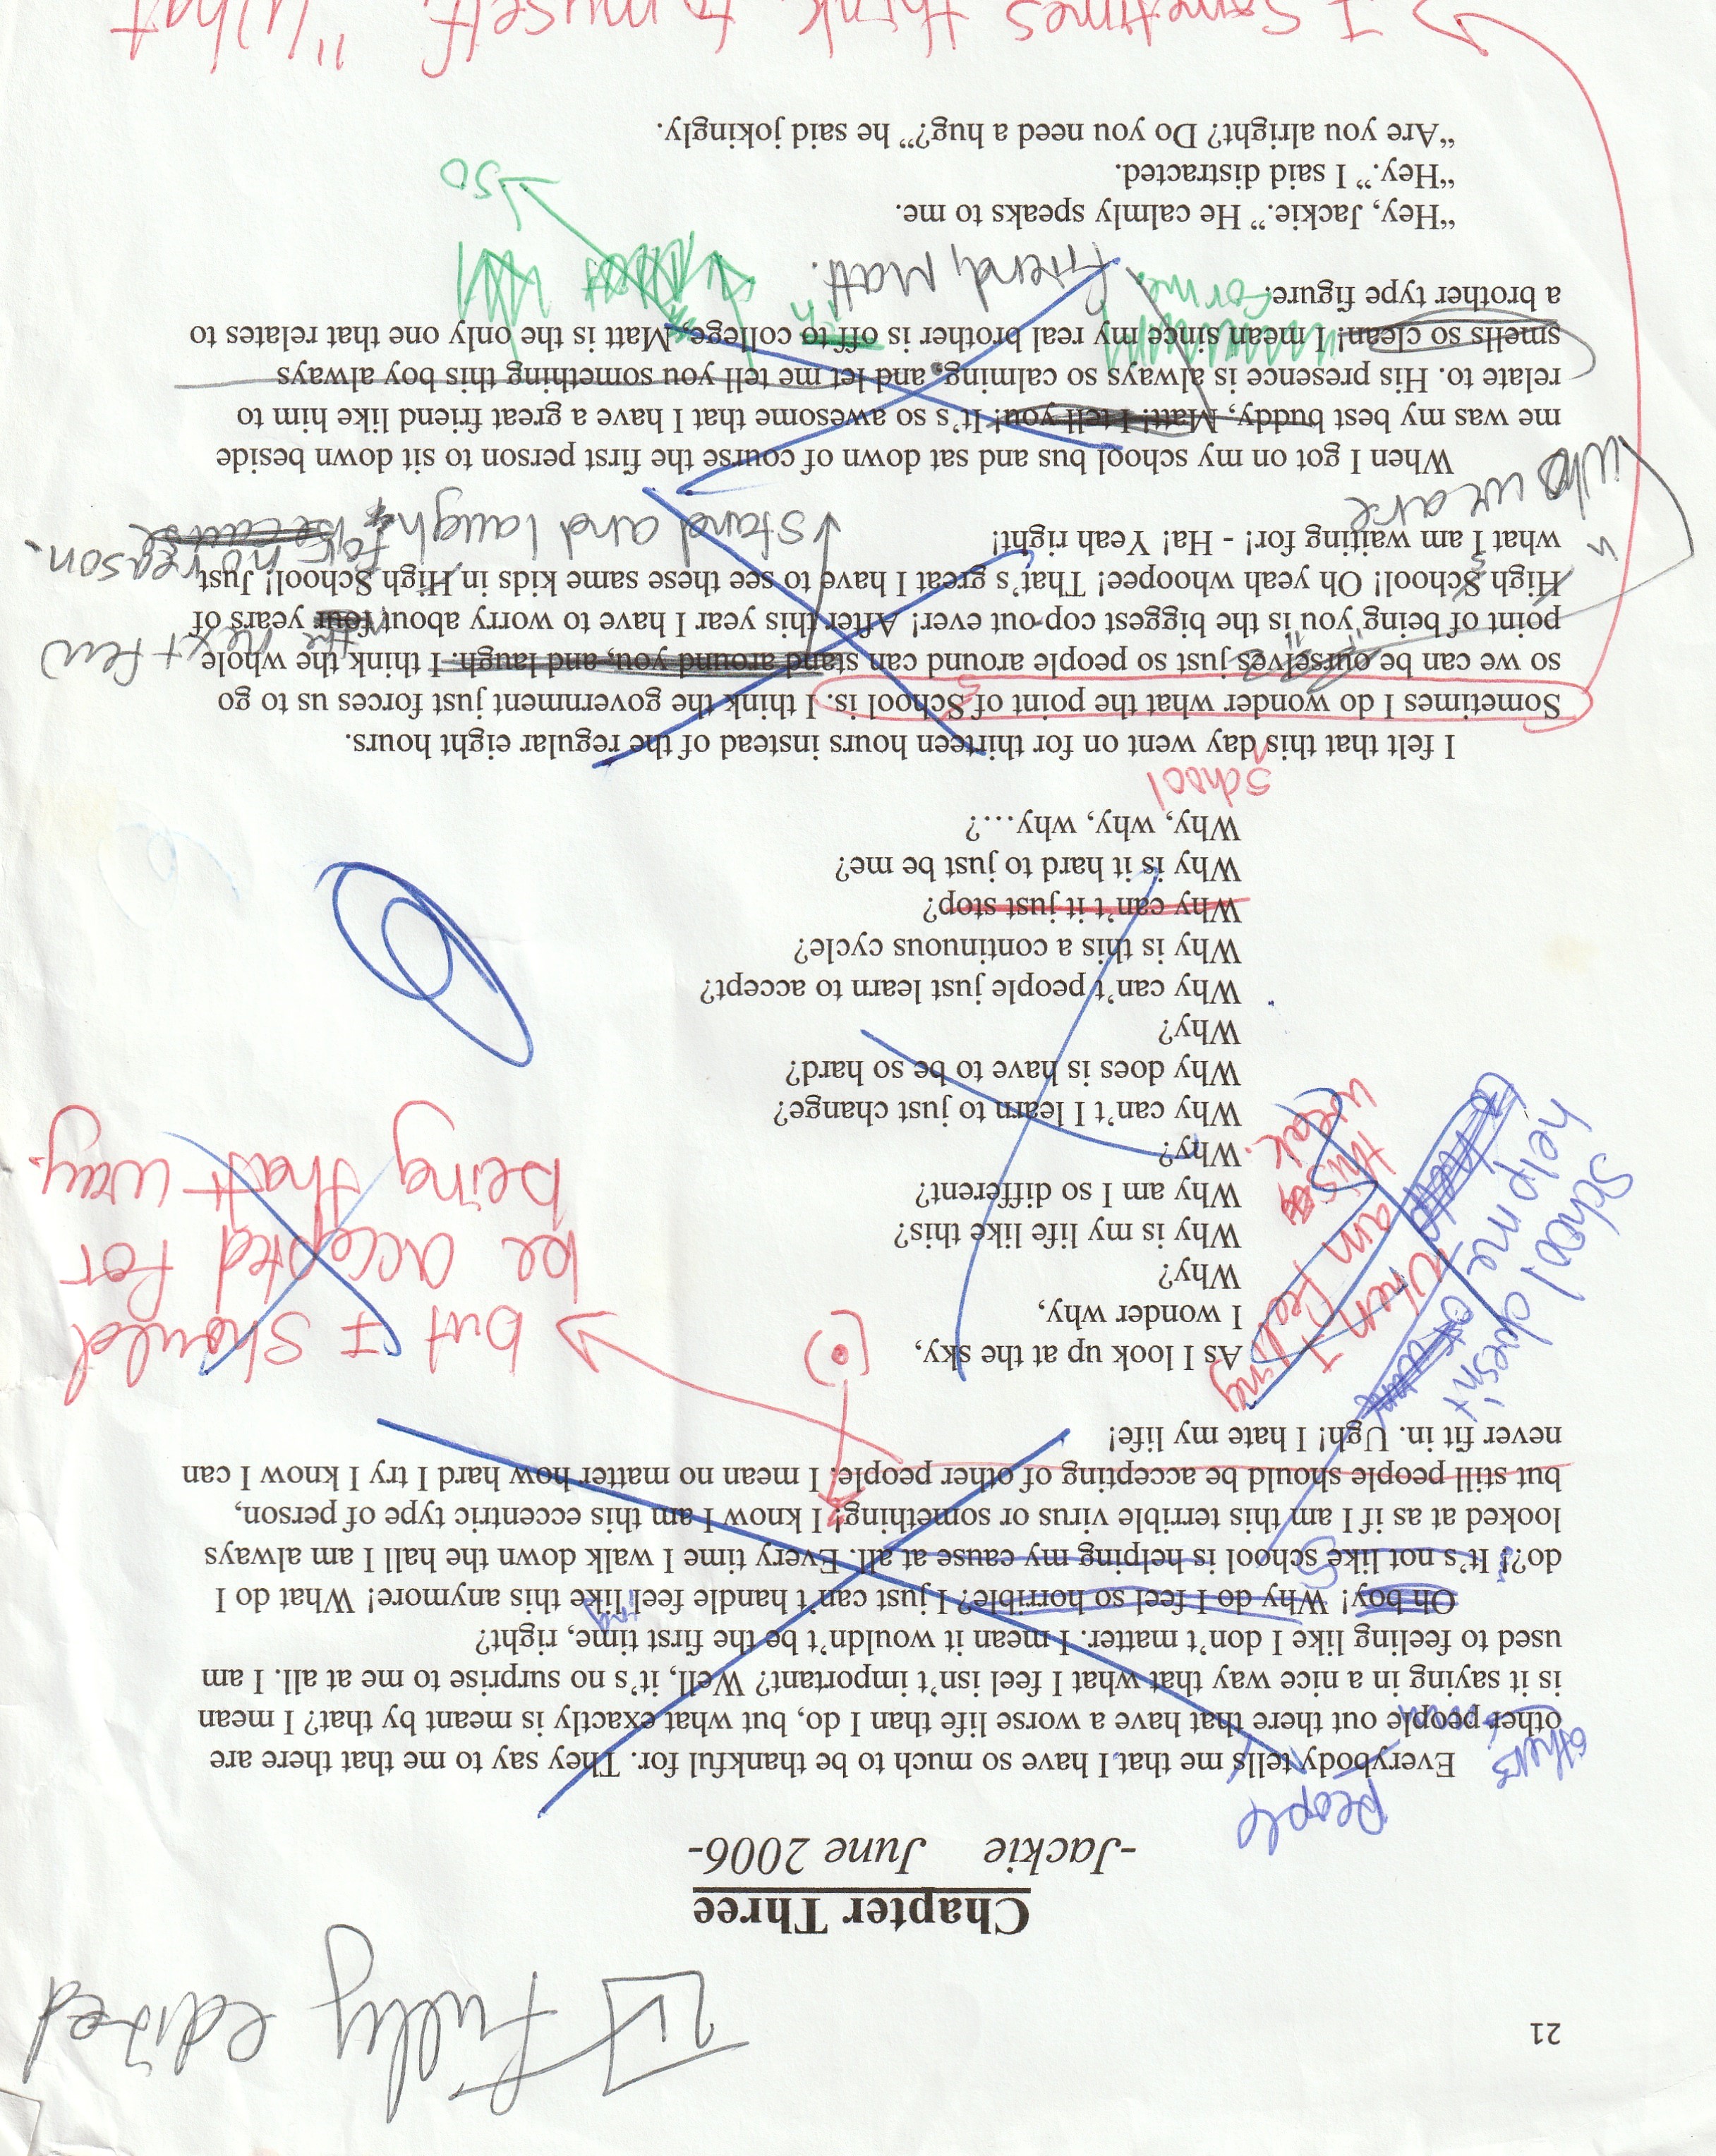 21
Fully edited
Chapter Three
-Jackie June 2006-
People
Everybody tells me that I have so much to be thankful for. They say to me that there are
others
other people out there that have a worse life than I do, but what exactly is meant by that? I mean
is it saying in a nice way that what I feel isn't important? Well, it's no surprise to me at all. I am
used to feeling like I don't matter. I mean it wouldn't be the first time, right?
ing
Oh boy! Why do I feel so horrible? I just can't handle feel like this anymore! What do I
do?! It's not like school is helping my cause at all. Every time I walk down the hall I am always
looked at as if I am this terrible virus or something! I know I am this eccentric type of person,
but still people should be accepting of other people. I mean no matter how hard I try I know I can
never fit in. Ugh! I hate my life!
School doesn't
help me
when I
am feeling
this
weak.
but I should
be accepted for
being that way.
As I look up at the sky,
I wonder why,
Why?
Why is my life like this?
Why am I so different?
Why?
Why can't I learn to just change?
Why does is have to be so hard?
Why?
Why can't people just learn to accept?
Why is this a continuous cycle?
Why can't it just stop?
Why is it hard to just be me?
Why, why, why…?
School
I felt that this day went on for thirteen hours instead of the regular eight hours.
Sometimes I do wonder what the point of School is. I think the government just forces us to go
so we can be ourselves just so people around can stand around you, and laugh. I think the whole
the next few
point of being you is the biggest cop-out ever! After this year I have to worry about four years of
High School! Oh yeah whoopee! That's great I have to see these same kids in High School! Just
what I am waiting for! - Ha! Yeah right!
who we are
stand and laugh because
for no reason.
When I got on my school bus and sat down of course the first person to sit down beside
me was my best buddy, Matt! I tell you! It's so awesome that I have a great friend like him to
relate to. His presence is always so calming, and let me tell you something this boy always
smells so clean! I mean since my real brother is off to college, Matt is the only one that relates to
in
a brother type figure.
for me
friend, Matt.
so
"Hey, Jackie." He calmly speaks to me.
"Hey." I said distracted.
"Are you alright? Do you need a hug?" he said jokingly.
I sometimes think to myself, "What